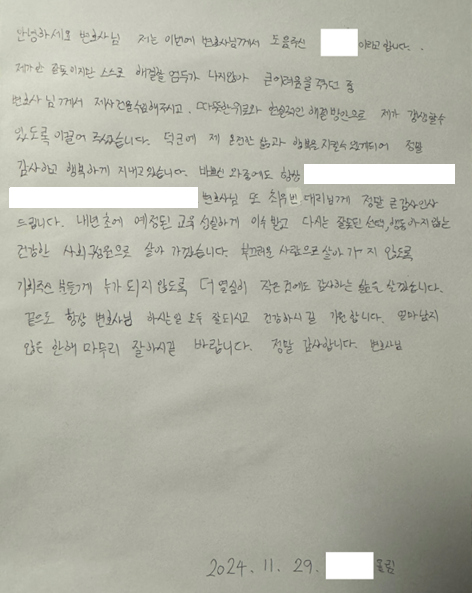 안녕하세요 변호사님 저는 이번에 변호사님께서 도움주신 이라고 합니다.
제가한 잘못이지만 스스로 해결할 엄두가 나지않아 큰어려움을 겪던 중
변호사님께서 제사건을 수임해주시고, 따뜻한위로와 현실적인 해결방안으로 제가 갱생할수
있도록 이끌어 주셨습니다. 덕분에 제 온전한 삶과 행복을 지킬수있게되어 정말
감사하고 행복하게 지내고있습니다. 바쁘신 와중에도 항상
변호사님 또 최유빈 대리님께 정말 큰감사인사
드립니다. 내년 초에 예정된 교육 성실하게 이수받고 다시는 잘못된 선택, 행동하지않는
건강한 사회구성원으로 살아 가겠습니다. 부끄러운 사람으로 살아가지 않도록
기회주신 분들께 누가 되지않도록 더 열심히 작은것에도 감사하는 삶을 살겠습니다.
끝으로 항상 변호사님 하시는일 모두 잘되시고 건강하시길 기원합니다. 얼마남지
않은 한해 마무리 잘하시길 바랍니다. 정말 감사합니다. 변호사님
2024. 11. 29. 올림